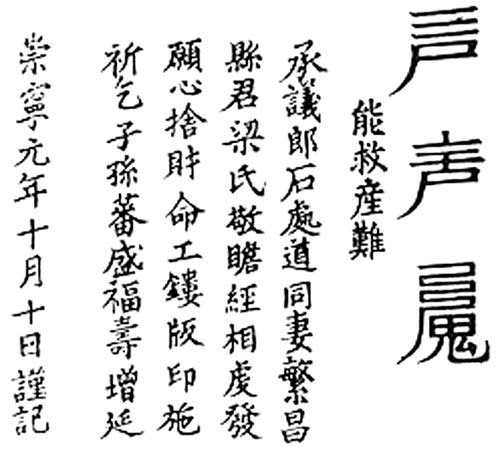 能救産難
承議郎石處道同妻繁昌
縣君梁氏敬瞻經相虔發
願心捨財命工鏤版印施
祈乞子孫蕃盛福壽增延
崇寧元年十月十日謹記